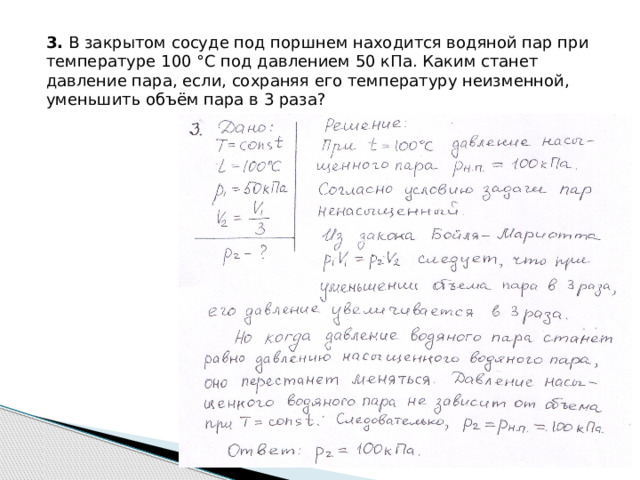 3. В закрытом сосуде под поршнем находится водяной пар при
температуре 100 °С под давлением 50 кПа. Каким станет
давление пара, если, сохраняя его температуру неизменной,
уменьшить объём пара в 3 раза?
3. Дано:
T = const
t = 100°C
p₁ = 50 кПа
V₂ = V₁/3
p₂ - ?
Решение:
При t = 100°C давление насы-
щенного пара pн.п. = 100 кПа.
Согласно условию задачи пар
ненасыщенный.
Из закона Бойля – Мариотта
p₁V₁ = p₂·V₂ следует, что при
уменьшении объема пара в 3 раза,
его давление увеличивается в 3 раза.
Но когда давление водяного пара станет
равно давлению насыщенного водяного пара,
оно перестанет меняться. Давление насы-
щенного водяного пара не зависит от объема
при T = const. Следовательно, p₂ = pн.п. = 100 кПа.
Ответ: p₂ = 100 кПа.